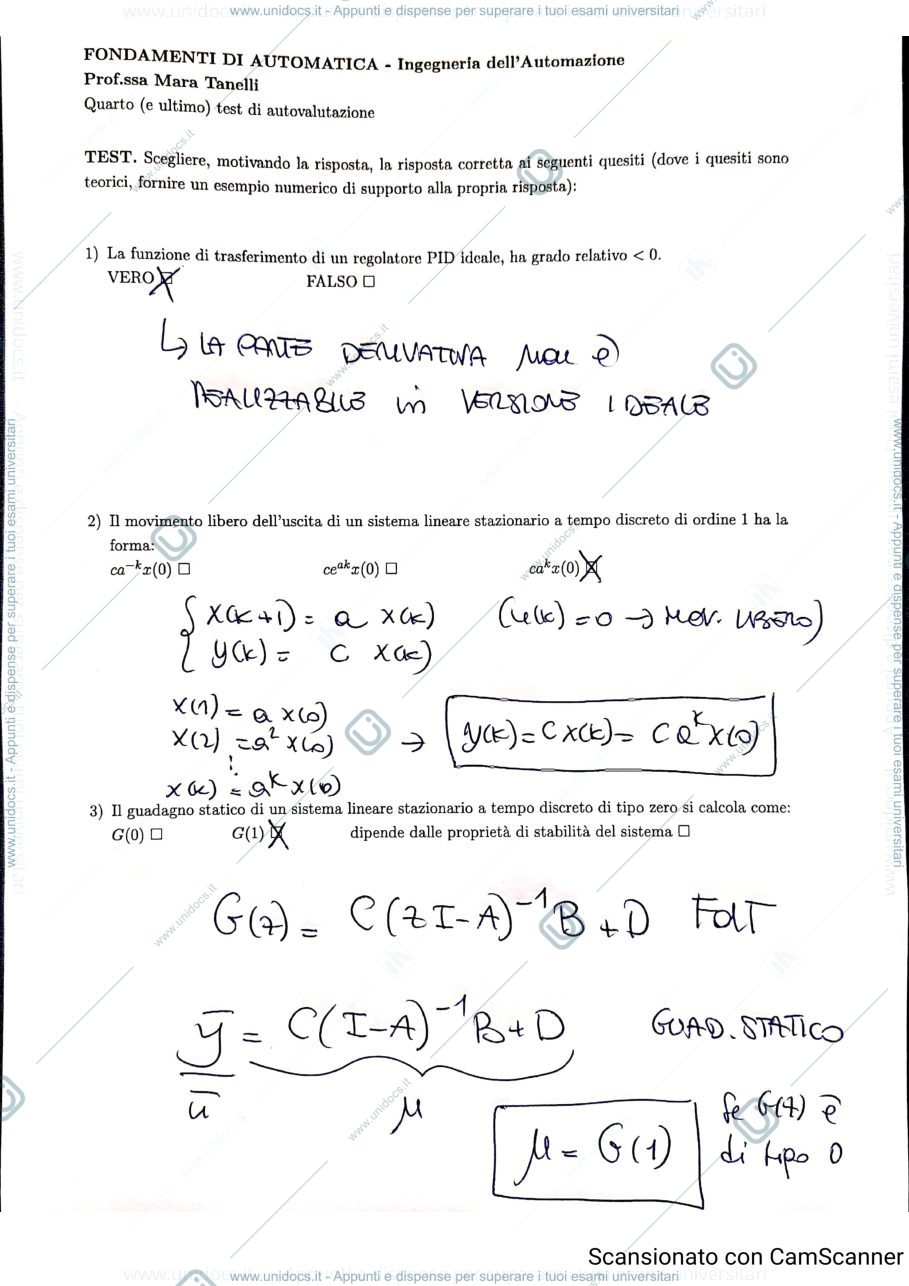 www.unidocs.it - Appunti e dispense per superare i tuoi esami universitari
FONDAMENTI DI AUTOMATICA - Ingegneria dell'Automazione
Prof.ssa Mara Tanelli
Quarto (e ultimo) test di autovalutazione
TEST. Scegliere, motivando la risposta, la risposta corretta ai seguenti quesiti (dove i quesiti sono
teorici, fornire un esempio numerico di supporto alla propria risposta):
1) La funzione di trasferimento di un regolatore PID ideale, ha grado relativo < 0.
VERO ☒ FALSO □
↳ LA PARTE DERIVATIVA non è
REALIZZABILE in VERSIONE IDEALE
2) Il movimento libero dell'uscita di un sistema lineare stazionario a tempo discreto di ordine 1 ha la
forma:
ca⁻ᵏx(0) □ ceᵃᵏx(0) □ caᵏx(0) ☒
{ x(k+1) = a x(k) (u(k) = 0 → MOV. LIBERO)
y(k) = c x(k)
x(1) = a x(0)
x(2) = a² x(0) → y(k) = c x(k) = c aᵏ x(0)
⋮
x(k) = aᵏ x(0)
3) Il guadagno statico di un sistema lineare stazionario a tempo discreto di tipo zero si calcola come:
G(0) □ G(1) ☒ dipende dalle proprietà di stabilità del sistema □
G(z) = C(zI-A)⁻¹B+D FdT
ȳ/ū = C(I-A)⁻¹B+D GUAD. STATICO
μ
μ = G(1) se G(z) è
di tipo 0
Scansionato con CamScanner
www.unidocs.it - Appunti e dispense per superare i tuoi esami universitari